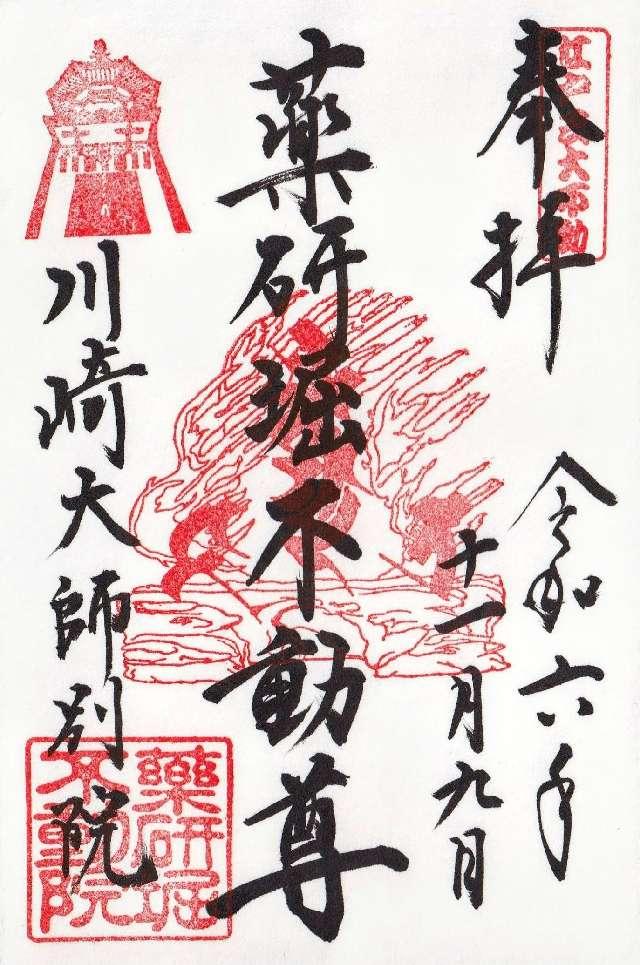 奉拝
江戸三大不動
令和六年
十一月九日
薬研堀不動尊
川崎大師別院
薬研堀
不動院